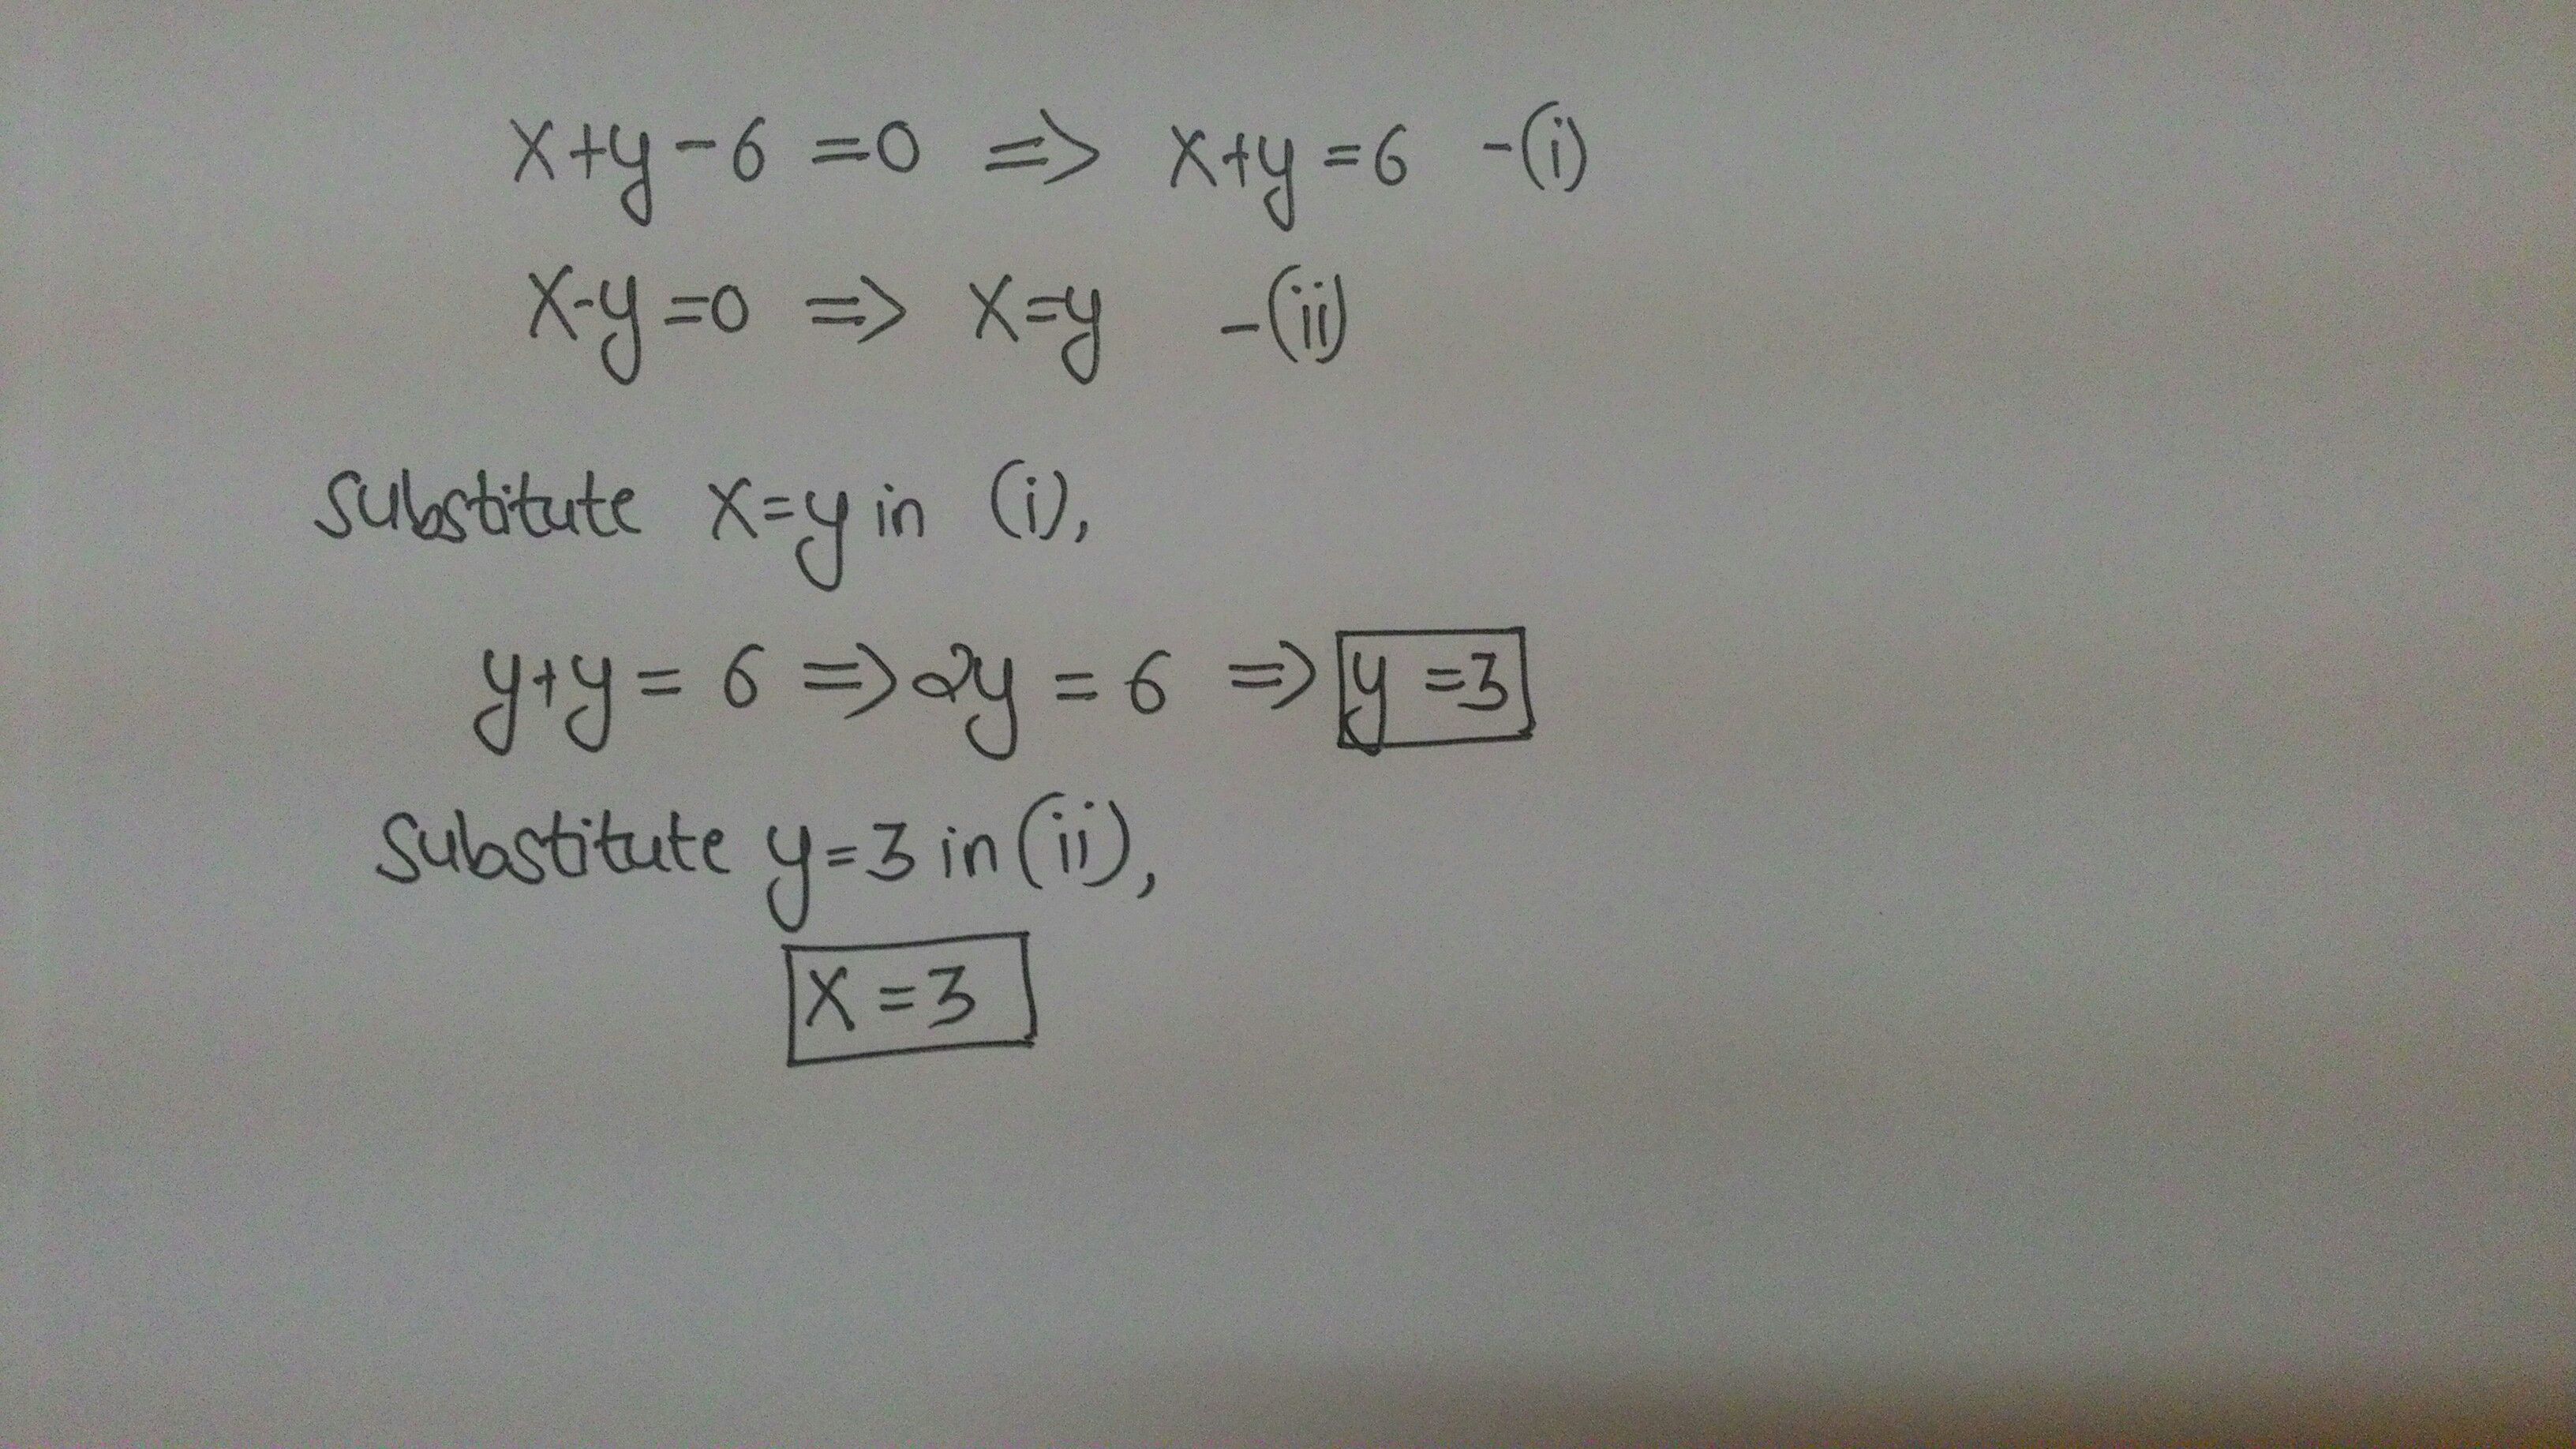 x+y-6=0 => x+y=6 -(i)
x-y=0 => x=y -(ii)
Substitute x=y in (i),
y+y=6 => 2y=6 => y=3
Substitute y=3 in (ii),
x=3